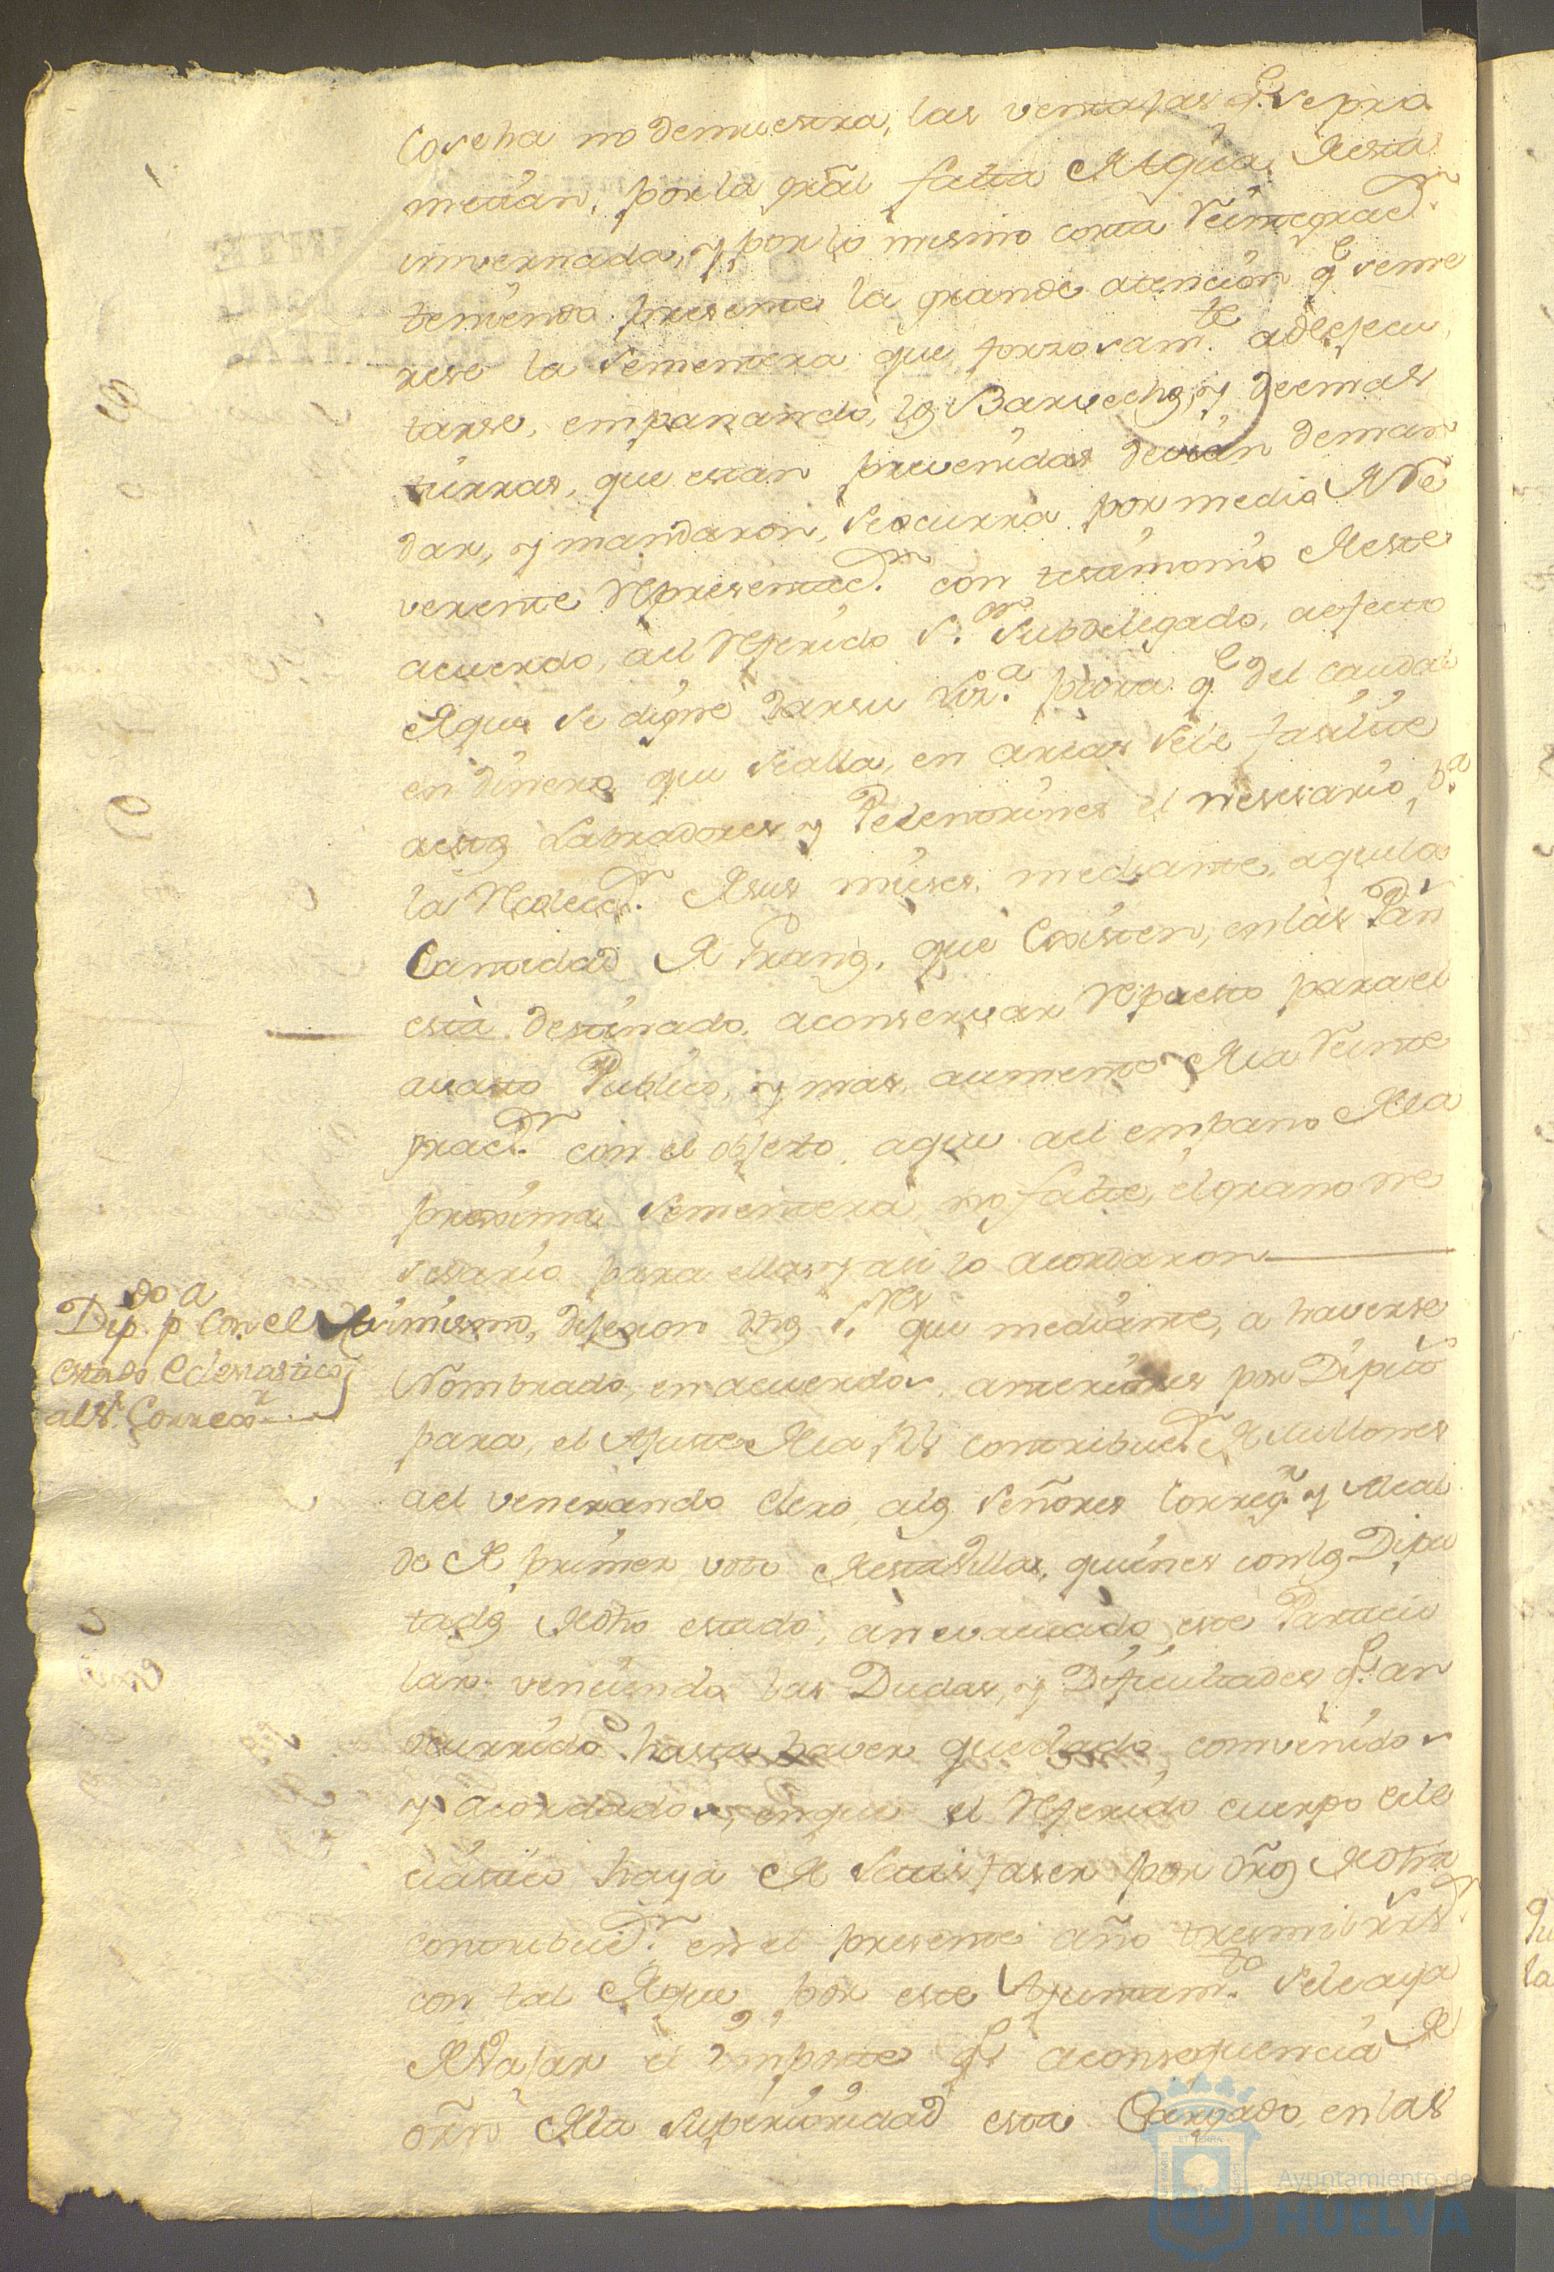 Cosecha no demuestra, las ventajas q.e se pro
metian, por la gral falta de Agua de esta
invernada, y por lo mismo corta Reintegrac.n
teniendo presente la grande atencion q.e seme
rese la sementera que forzosam.te a de ejecu
tarse, empanando, los Barvechos, y deemas
tierras, que estan prevenidas devian deman
dar, y mandaron, se ocurra por medio de Re
verente Representac.n con testimonio de este
acuerdo, al Referido S.or Subdelegado, aefecto
de que se digne dar su
en dinero que se alla, en arcas se le facilite
a estos Labradores y Pelentrines el nesesario p.a
la Recolecc.n de sus mieses, mediante, aque la
Cantidad de Granos, que Existen, en las Pan
está destinado, aconservar Repuesto para el
avasto Publico, y mas aumento de la Reinte
grac.n con el objeto, aque al empano de la
proxima sementera no falte, el grano ne
sesario para ella, y asi lo acordaron
Dip.do p.a Con el
estado Eclesiastico
al S.r Correx.r
Asimismo, dijeron dhos S.res que mediante, a haverse
Nombrado, en acuerdos, anteriores por Diputº
para, el Ajuste de la contribuc.n de Millones
del venerando clero, alos Señores Correg.r y Alcal
de de primer voto de esta Villa, quienes con los Dipu
tados de dho estado, an evacuado este Particu
lar venciendo las Dudas, y Dificultades q.e an
ocurrido hasta haver quedado, convenidos
y acordados, en que el Referido cuerpo Ecle
ciastico haya de Satisfaser por dros de dha
contribuc.n en el presente año tres mil rr.s
con tal de que por este Ayuntam.to se le aya
de Vajar el importe q.e a consequencia de
orn de la Superioridad esta Cargado, en las
Ayuntamiento de
HUELVA